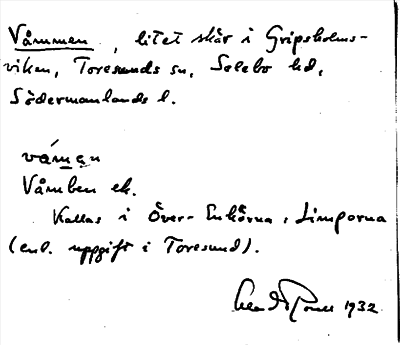 Våmmen, litet skär i Gripsholms-
viken, Toresunds sn, Selebo hd,
Södermanlands l.
våman
Våmben ek.
Kallas i Över-Enhörna: Limporna
(enl. uppgift i Toresund).
1932